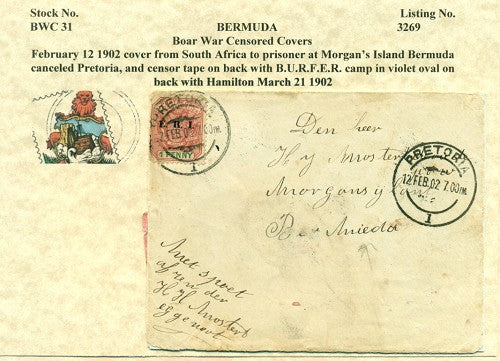 Stock No.
BWC 31
BERMUDA
Listing No.
3269
Boar War Censored Covers
February 12 1902 cover from South Africa to prisoner at Morgan's Island Bermuda
canceled Pretoria, and censor tape on back with B.U.R.F.E.R. camp in violet oval on
back with Hamilton March 21 1902
PRETORIA
FEB 02 7.00M.
1
E.R.I.
1 PENNY
Den heer
H J Mostert
Morgans
PRETORIA
12 FEB.02 7.00M.
1
Met spoet
H J Mostert